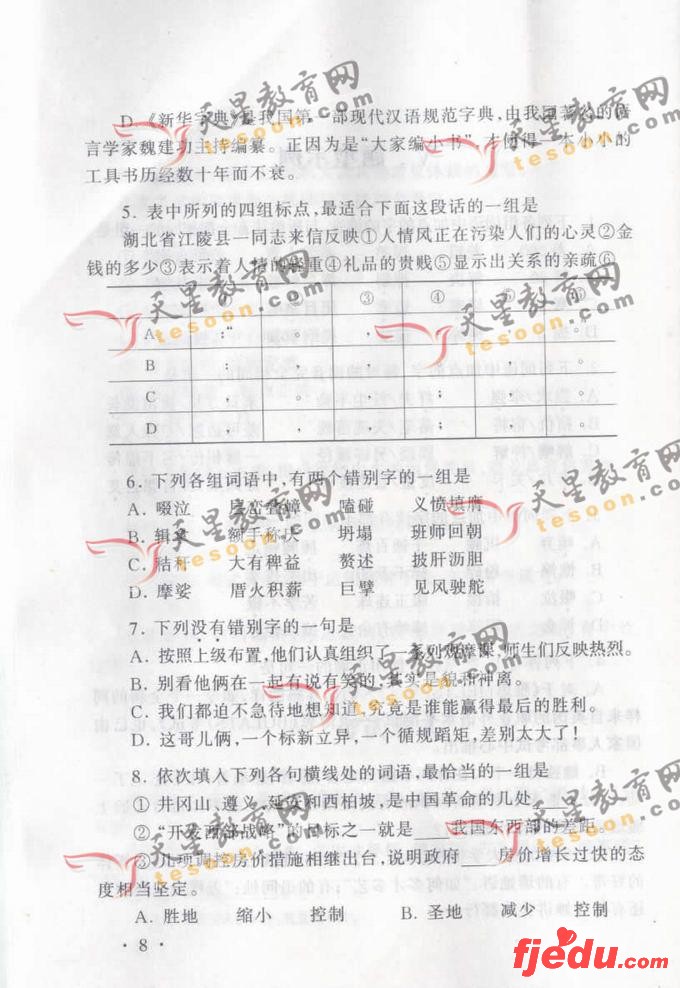 D.《新华字典》是我国第一部现代汉语规范字典,由我国著名的
言学家魏建功主持编纂。正因为是“大家编小书”,才使得一本小小的
工具书历经数十年而不衰。
5. 表中所列的四组标点,最适合下面这段话的一组是
湖北省江陵县一同志来信反映①人情风正在污染人们的心灵②金
钱的多少③表示着人情的轻重④礼品的贵贱⑤显示出关系的亲疏⑥
③ ④ ⑤ ⑥
A :“ 。 ,
B : , 。 , ;
C ; , 。
D , 。 , ; , 。
6. 下列各组词语中,有两个错别字的一组是
A. 啜泣 层峦叠嶂 嗑碰 义愤填膺
B. 辑拿 额手称庆 坍塌 班师回朝
C. 秸秆 大有稗益 赘述 披肝沥胆
D. 摩娑 厝火积薪 巨擘 见风驶舵
7. 下列没有错别字的一句是
A. 按照上级布置,他们认真组织了一系列观摩课,师生们反映热烈。
B. 别看他俩在一起有说有笑的,其实是貌和神离。
C. 我们都迫不急待地想知道,究竟是谁能赢得最后的胜利。
D. 这哥儿俩,一个标新立异,一个循规蹈矩,差别太大了!
8. 依次填入下列各句横线处的词语,最恰当的一组是
① 井冈山、遵义、延安和西柏坡,是中国革命的几处____。
②“开发西部战略”的目标之一就是____我国东西部的差距。
③ 几项调控房价措施相继出台,说明政府____房价增长过快的态
度相当坚定。
A. 胜地 缩小 控制 B. 圣地 减少 控制
· 8 ·
天星教育网
tesoon.com
天星教育网
tesoon.com
天星教育网
tesoon.com
天星教育网
tesoon.com
天星教育网
tesoon.com
天星教育网
tesoon.com
天星教育网
tesoon.com
天星教育网
tesoon.com
fjedu.com